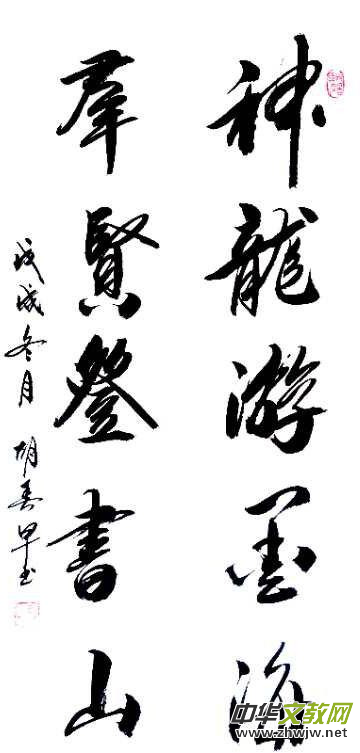 神龍游墨海
羣賢登書山
戊戌冬月 胡春早书
中华文教网
www.zhwjw.net